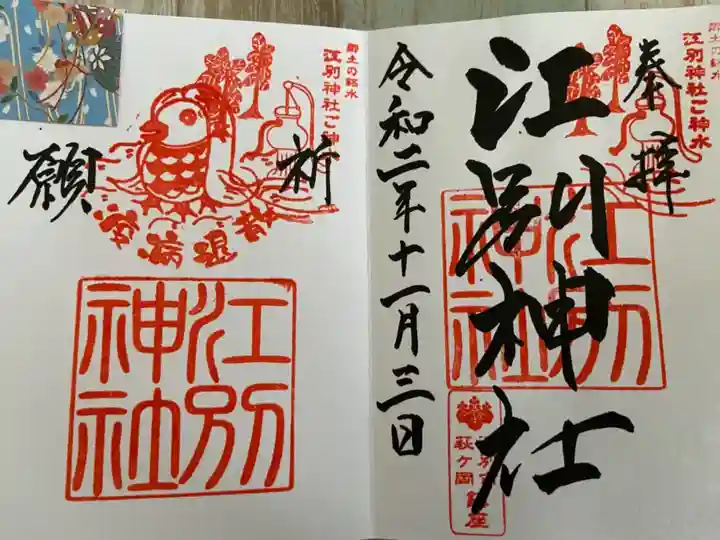 奉拝
江別神社
令和二年十一月三日
郷土の銘水
江別神社ご神水
江別神社
萩ヶ岡鎮座
郷土の銘水
江別神社ご神
祈願
疫病退散
江別神社